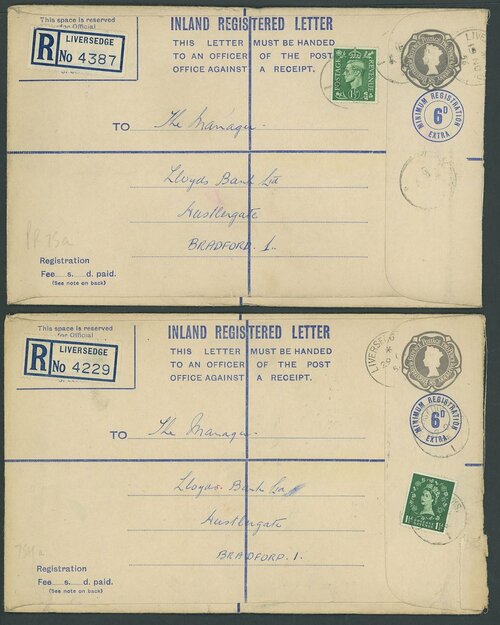 This space is reserved
for Official
R LIVERSEDGE
No 4387
INLAND REGISTERED LETTER
THIS LETTER MUST BE HANDED
TO AN OFFICER OF THE POST
OFFICE AGAINST A RECEIPT.
POSTAGE REVENUE
MINIMUM REGISTRATION
6D
EXTRA
TO The Manager
Lloyds Bank Ltd
Hustlergate
BRADFORD 1.
Registration
Fee s. d. paid.
(See note on back)
This space is reserved
for Official
R LIVERSEDGE
No 4229
INLAND REGISTERED LETTER
THIS LETTER MUST BE HANDED
TO AN OFFICER OF THE POST
OFFICE AGAINST A RECEIPT.
LIVERSEDGE
MINIMUM REGISTRATION
6D
EXTRA
TO The Manager
Lloyds Bank Ltd
Hustlergate
BRADFORD. 1.
Registration
Fee s. d. paid.
(See note on back)